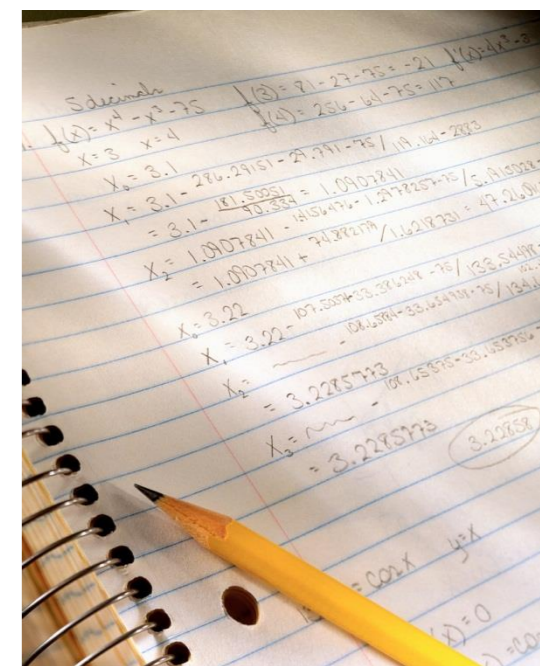 5 decimals
1. f(x) = x⁴ - x³ - 75 f(3) = 81 - 27 - 75 = -21 f'(x) = 4x³ - 3
x = 3 x = 4 f(4) = 256 - 64 - 75 = 117
X₀ = 3.1
X₁ = 3.1 - 286.29151 - 29.791 - 75 /
= 3.1 - 181.50051 / 90.334 = 1.0907841
X₂ = 1.0907841 - 1.4156476 - 1.2978257 - 75 /
= 1.0907841 + 74.882179 / 1.6218731 = 47.26
X₀ = 3.22
X₁ = 3.22 - 107.5054 - 33.386248 - 75 / 133.54498
X₂ = - 108.65884 - 33.654938 - 75 / 134.
= 3.2285773
X₃ = - 108.65375 - 33.653756 -
= 3.2285773 3.22858
= cosx y = x
(x) = 0
) = co